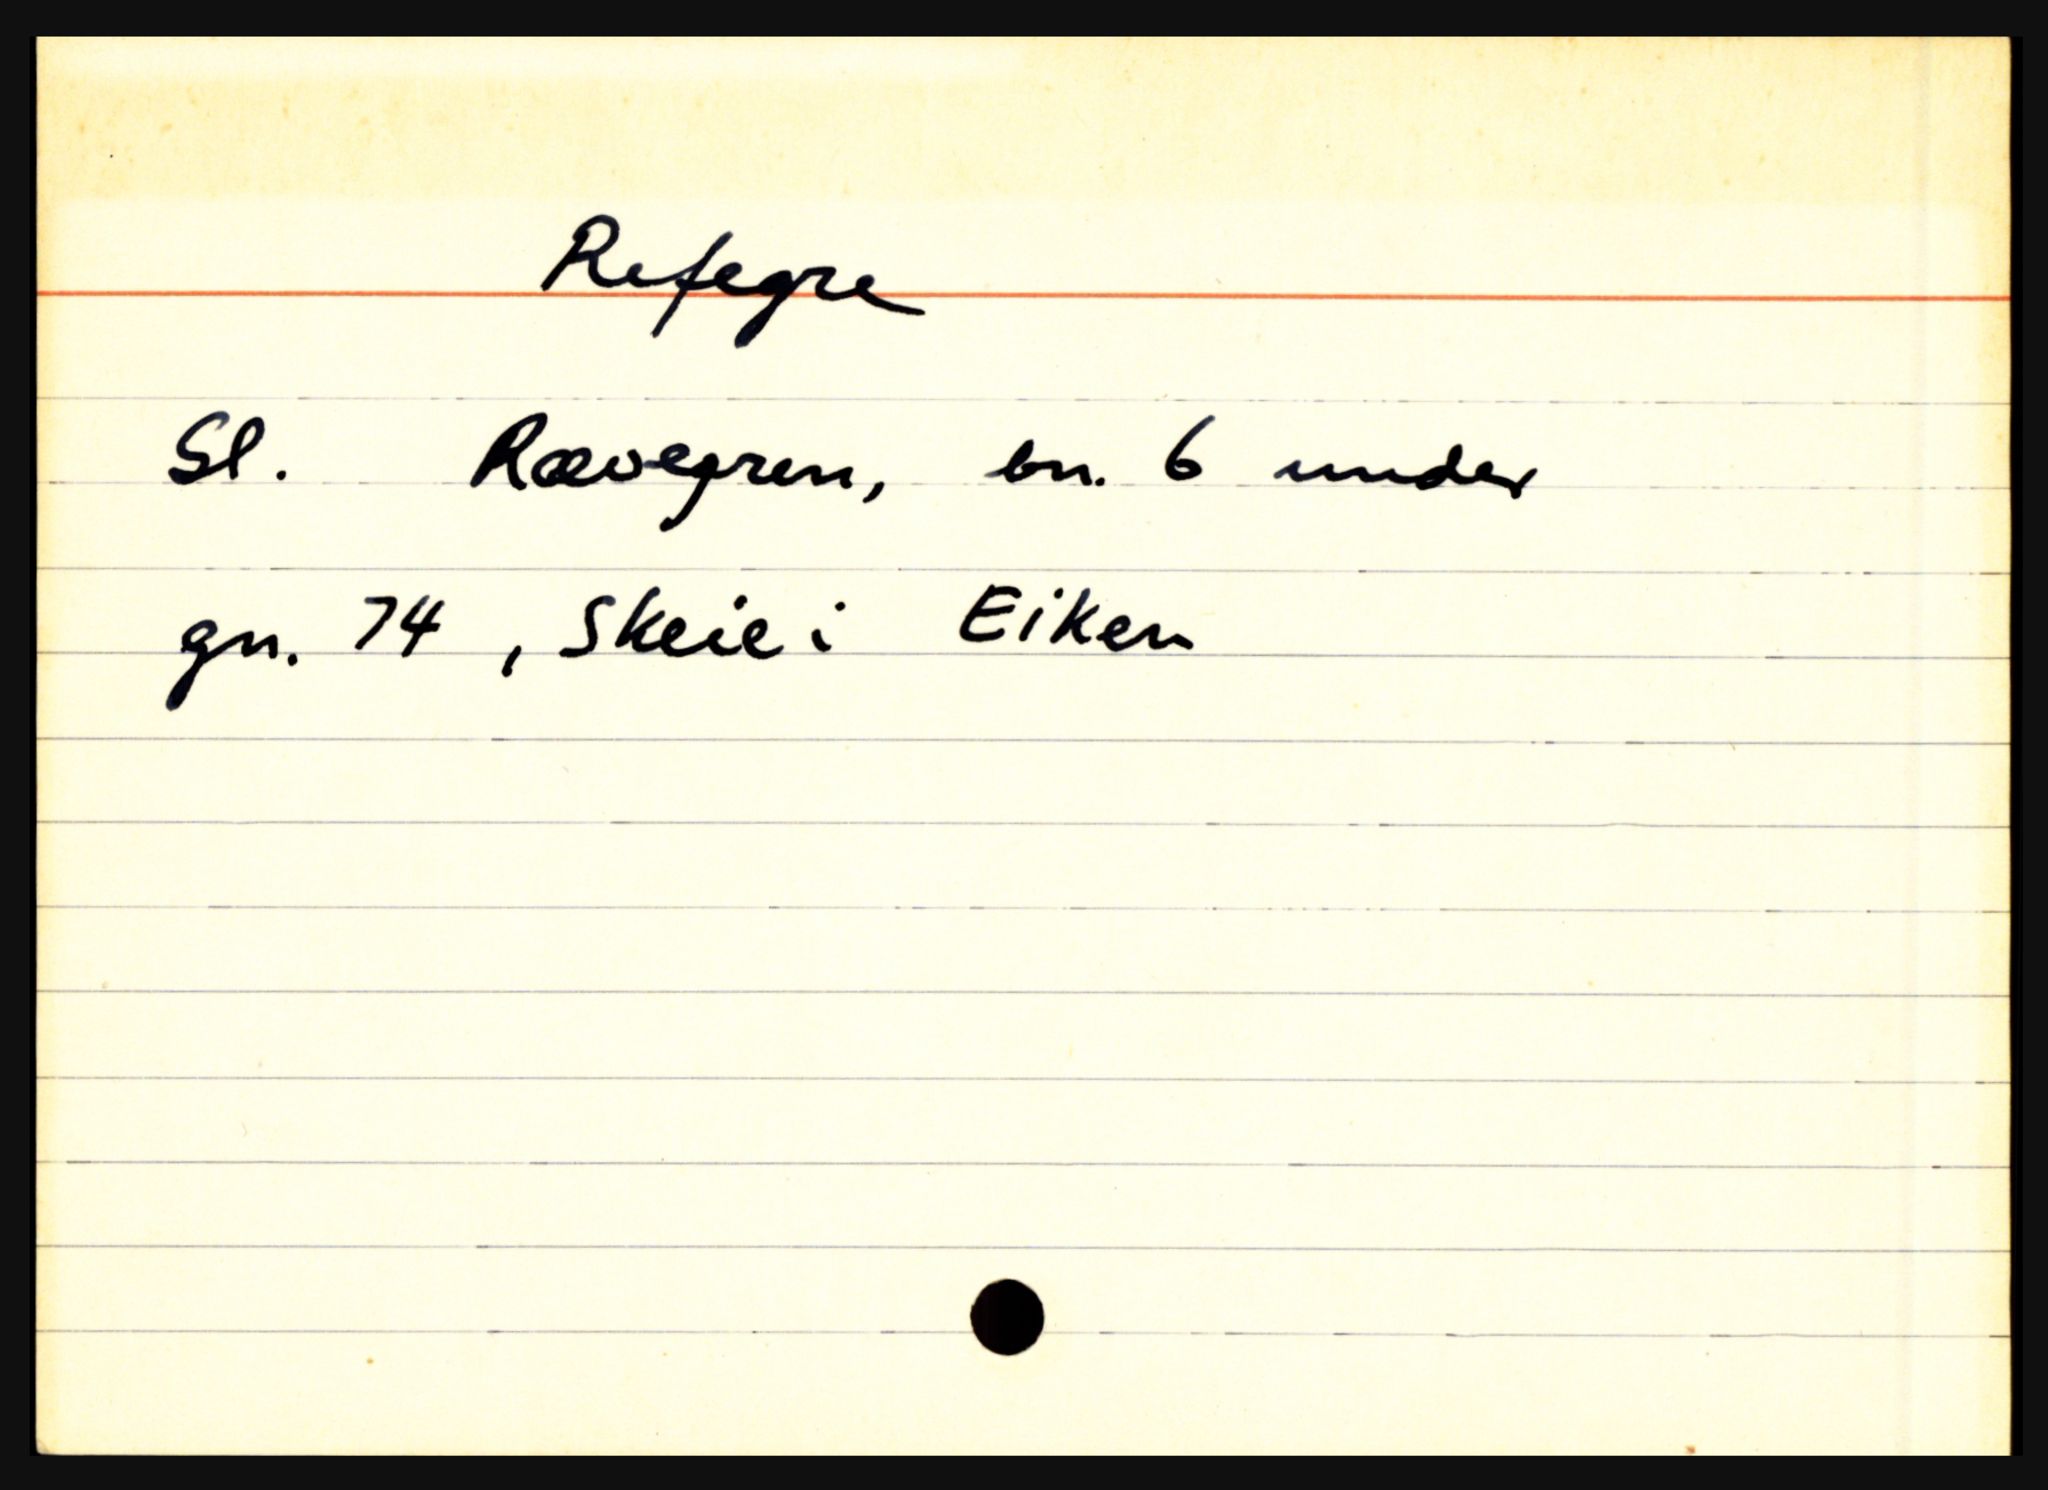 Refegre
Sl. Rævegren, bn. 6 under
gn. 74, Skeie i Eiken